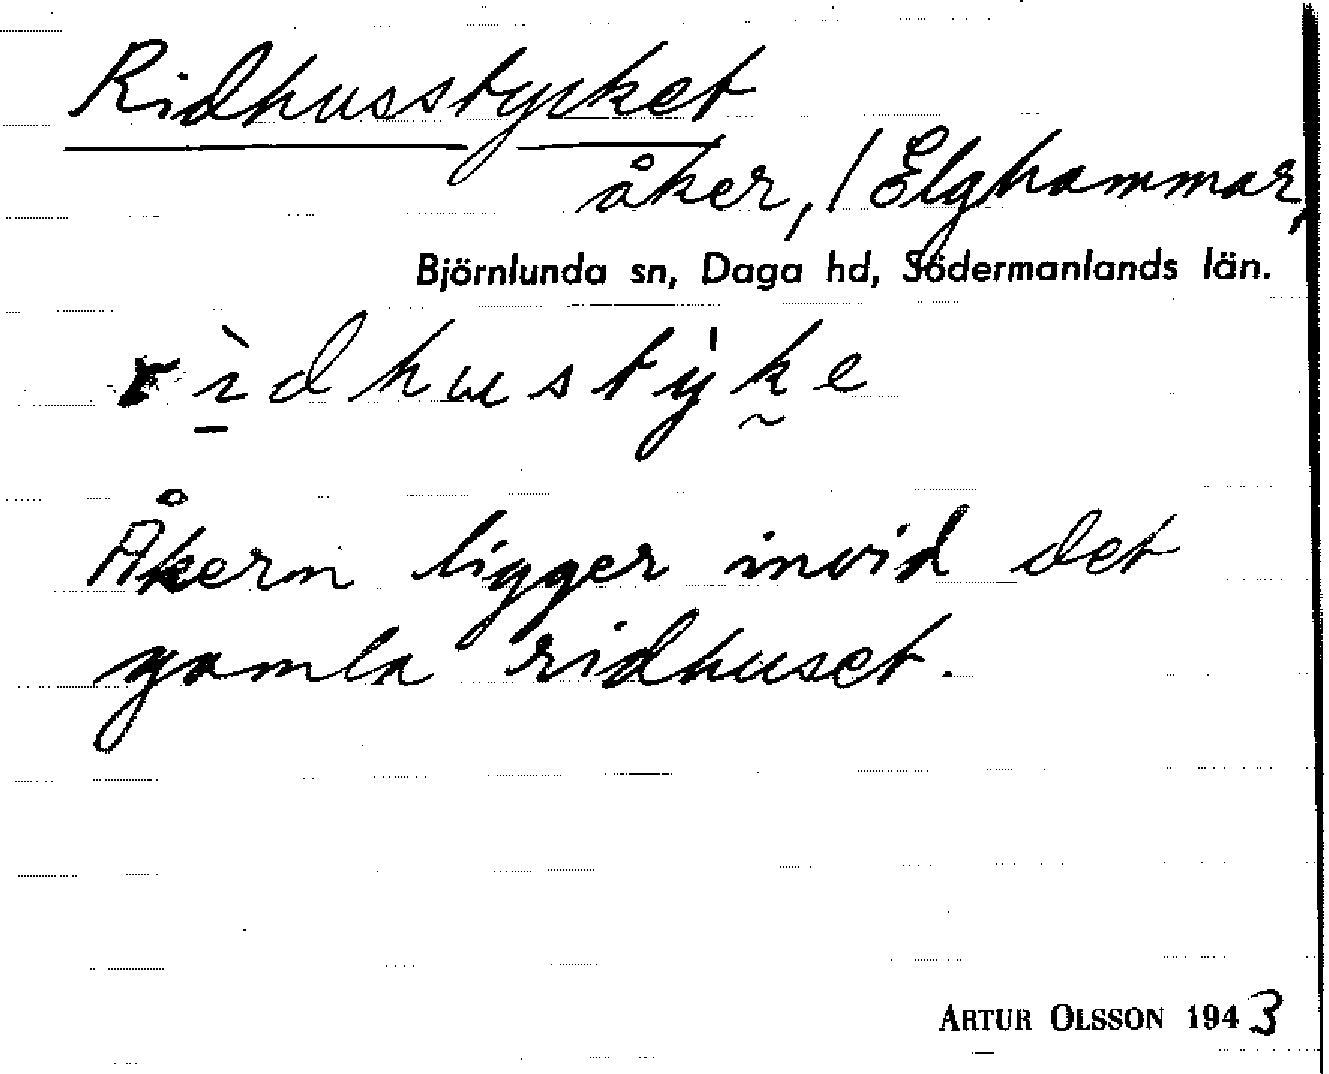 Ridhusstycket
åker, / Elghammar,
Björnlunda sn, Daga hd, Södermanlands län.
rìdhustỳke
Åkern ligger invid det
gamla ridhuset.
ARTUR OLSSON 1943